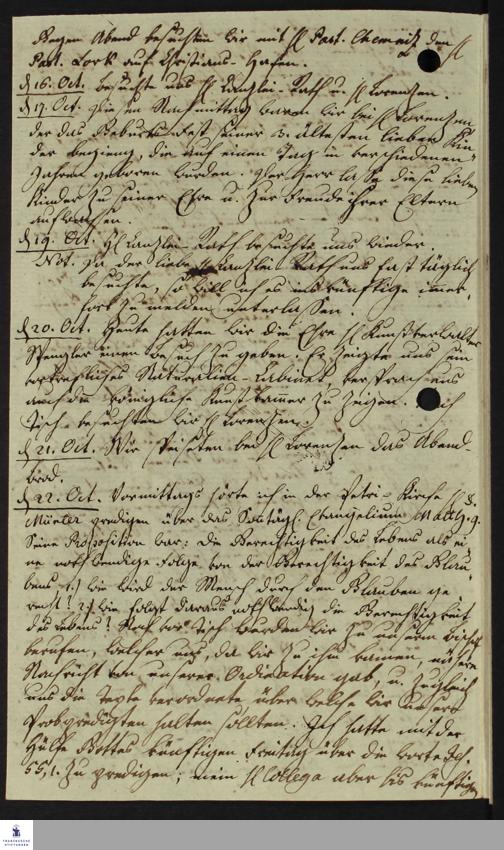 Gegen Abend besuchten wir mit H Past. Chemnitz den H
Past. Lork auf Christians-Hafen.
d 16. Oct. besuchte uns H Canzlei-Rath u. H Lorenzen.
d 17. Oct. Die im Nachmittag waren wir bei H Lorenzen
der das Geburtsfest seiner 3 ältesten lieben Kin-
der begieng, die auf einen Tag in verschiedenen
Jahren geboren wurden. Der Herr lasse diese lieben
Kinder zu seiner Ehre u. zur Freude ihrer Eltern
aufwachsen.
d 19. Oct. H Canzlei-Rath besuchte uns wieder.
Not. Da der liebe H Canzlei Rath uns fast täglich
besuchte, so will ich es ins künftige immer-
fort zu melden unterlassen.
d 20. Oct. Heute hatten wir die Ehre H Kunstverwalter
Spengler einen Besuch zu geben. Er zeigte uns sein
vortrefliches Naturalien-Cabinet, versprach uns
auch die Königliche Kunstkammer zu zeigen. Nach
Tisch besuchten wir H Lorenzen.
d 21. Oct. Wir speiseten bei H Lorenzen das Abend-
brod.
d 22. Oct. Vormittags hörte ich in der Petri-Kirche H D.
Münter predigen über das Sontägl. Evangelium Matth. 9.
Seine Proposition war: die Gerechtigkeit des Lebens als ei-
ne nothwendige Folge von der Gerechtigkeit des Glau-
bens. 1.) Wie wird der Mensch durch den Glauben ge
recht? 2.) Wie folgt daraus nothwendig die Gerechtigkeit
des Lebens? Nach vor Tisch wurden wir zu unserm Bischof
berufen, welcher uns, da wir zu ihm kamen, nähere
Nachricht von unserer Ordination gab, u. zugleich
uns die Texte verordnete über welche wir unsere
Probpredigten halten sollten. Ich hatte mit der
Hülfe Gottes künftigen Freitag über die Worte Jes.
55,1. zu predigen; mein H Collega aber bis künftigen
FRANCKESCHE
STIFTUNGEN